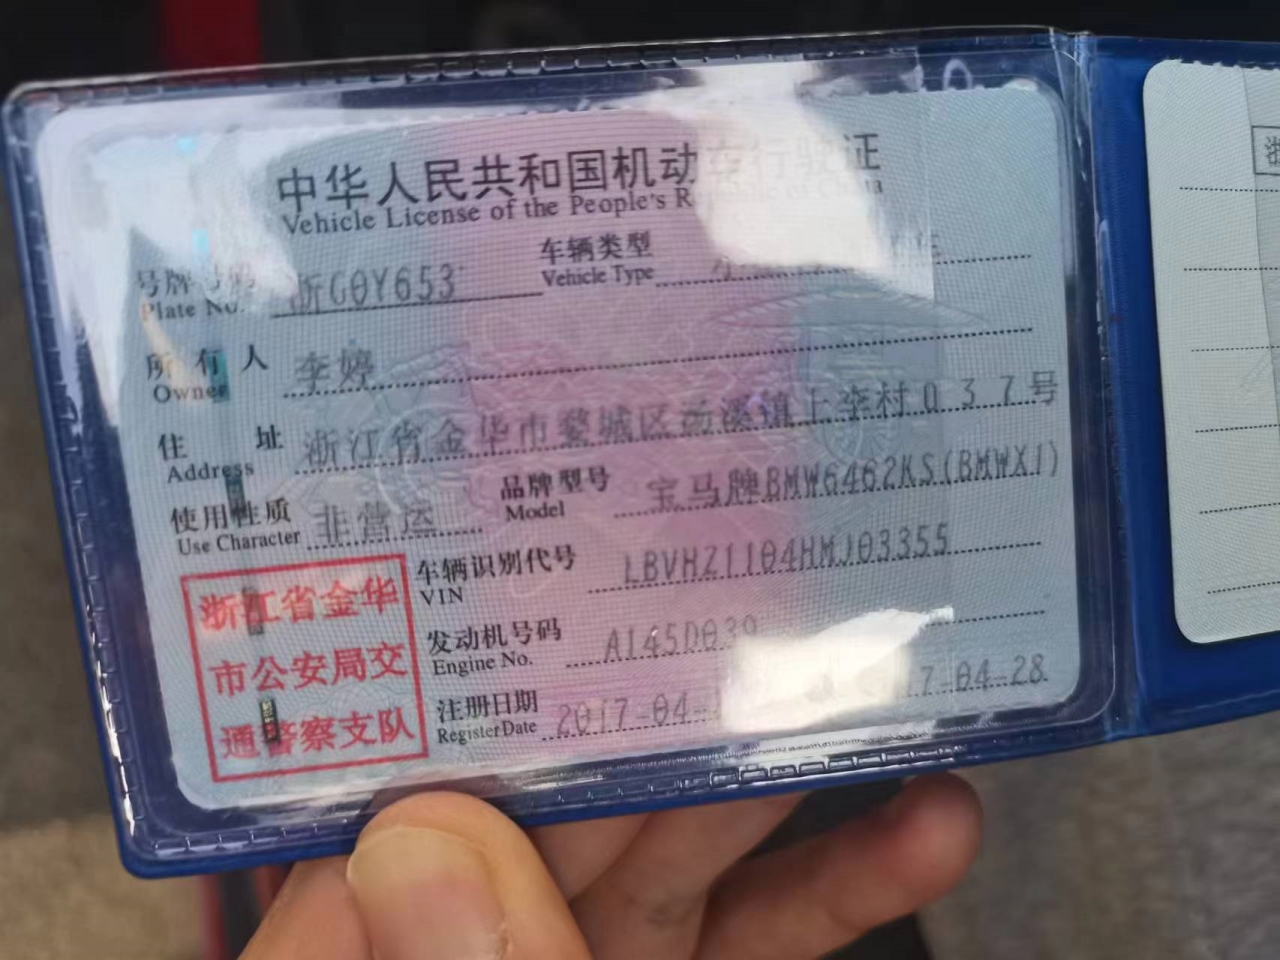 中华人民共和国机动车行驶证
Vehicle License of the People's Republic of China
号牌号码 浙G0Y653 车辆类型
Plate No. Vehicle Type
所有人 李婷
Owner
住址 浙江省金华市婺城区汤溪镇上李村037号
Address
使用性质 非营运 品牌型号 宝马牌BMW6462KS(BMWX1)
Use Character Model
车辆识别代号 LBVHZ1104HMJ03355
VIN
发动机号码 A145D039
Engine No.
注册日期 2017-04- 17-04-28
Register Date
浙江省金华
市公安局交
通警察支队
浙